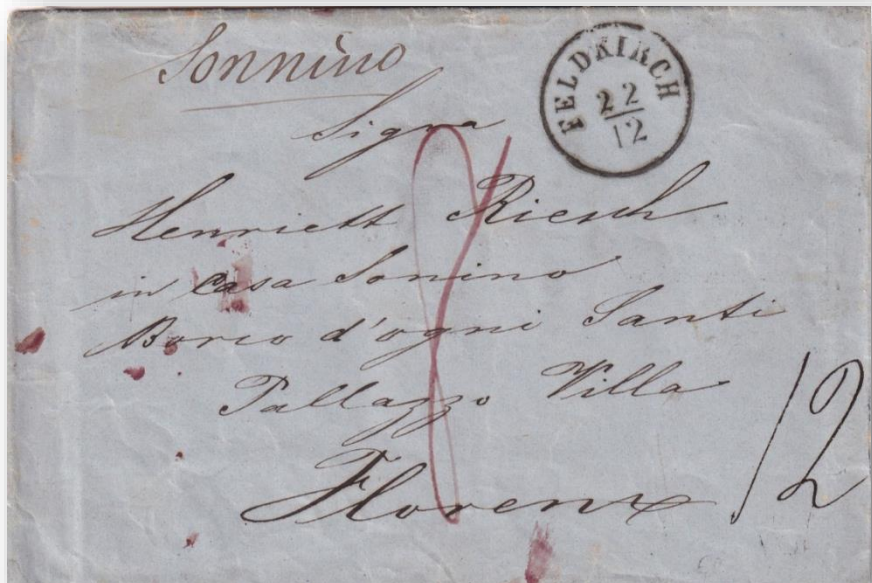 Sonnino
FELDKIRCH
22
12
Sigra
Henriett Riesch
in Casa Sonino
Borco d'ogni Santi
Pallazzo Villa
Florenz
12